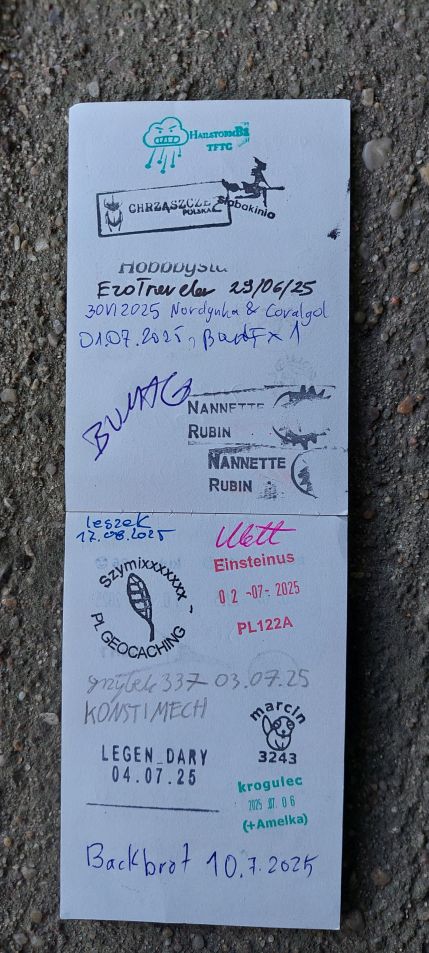 HAILSTORMB2
TFTC
CHRZĄSZCZE
POLSKA
Słobakinio
Hobbbysta
EzoTraveler 29/06/25
30VI2025 Nordynka & Coralgol
01.07.2025, BartFx 1
NANNETTE
RUBIN
NANNETTE
RUBIN
leszek
17.08.2025
Szymixxxxxxx
PL GEOCACHING
Einsteinus
02 -07- 2025
PL122A
grzybek 337 03.07.25
KONSTIMECH
marcin
3243
LEGEN_DARY
04.07.25
krogulec
2025 .07. 06
(+Amelka)
Backbrot 10.7.2025